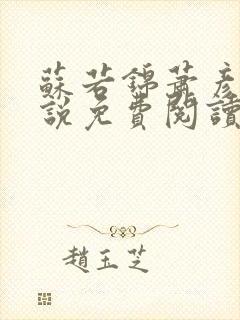 蘇若錦蕭彥
說免費閱讀
趙玉芝